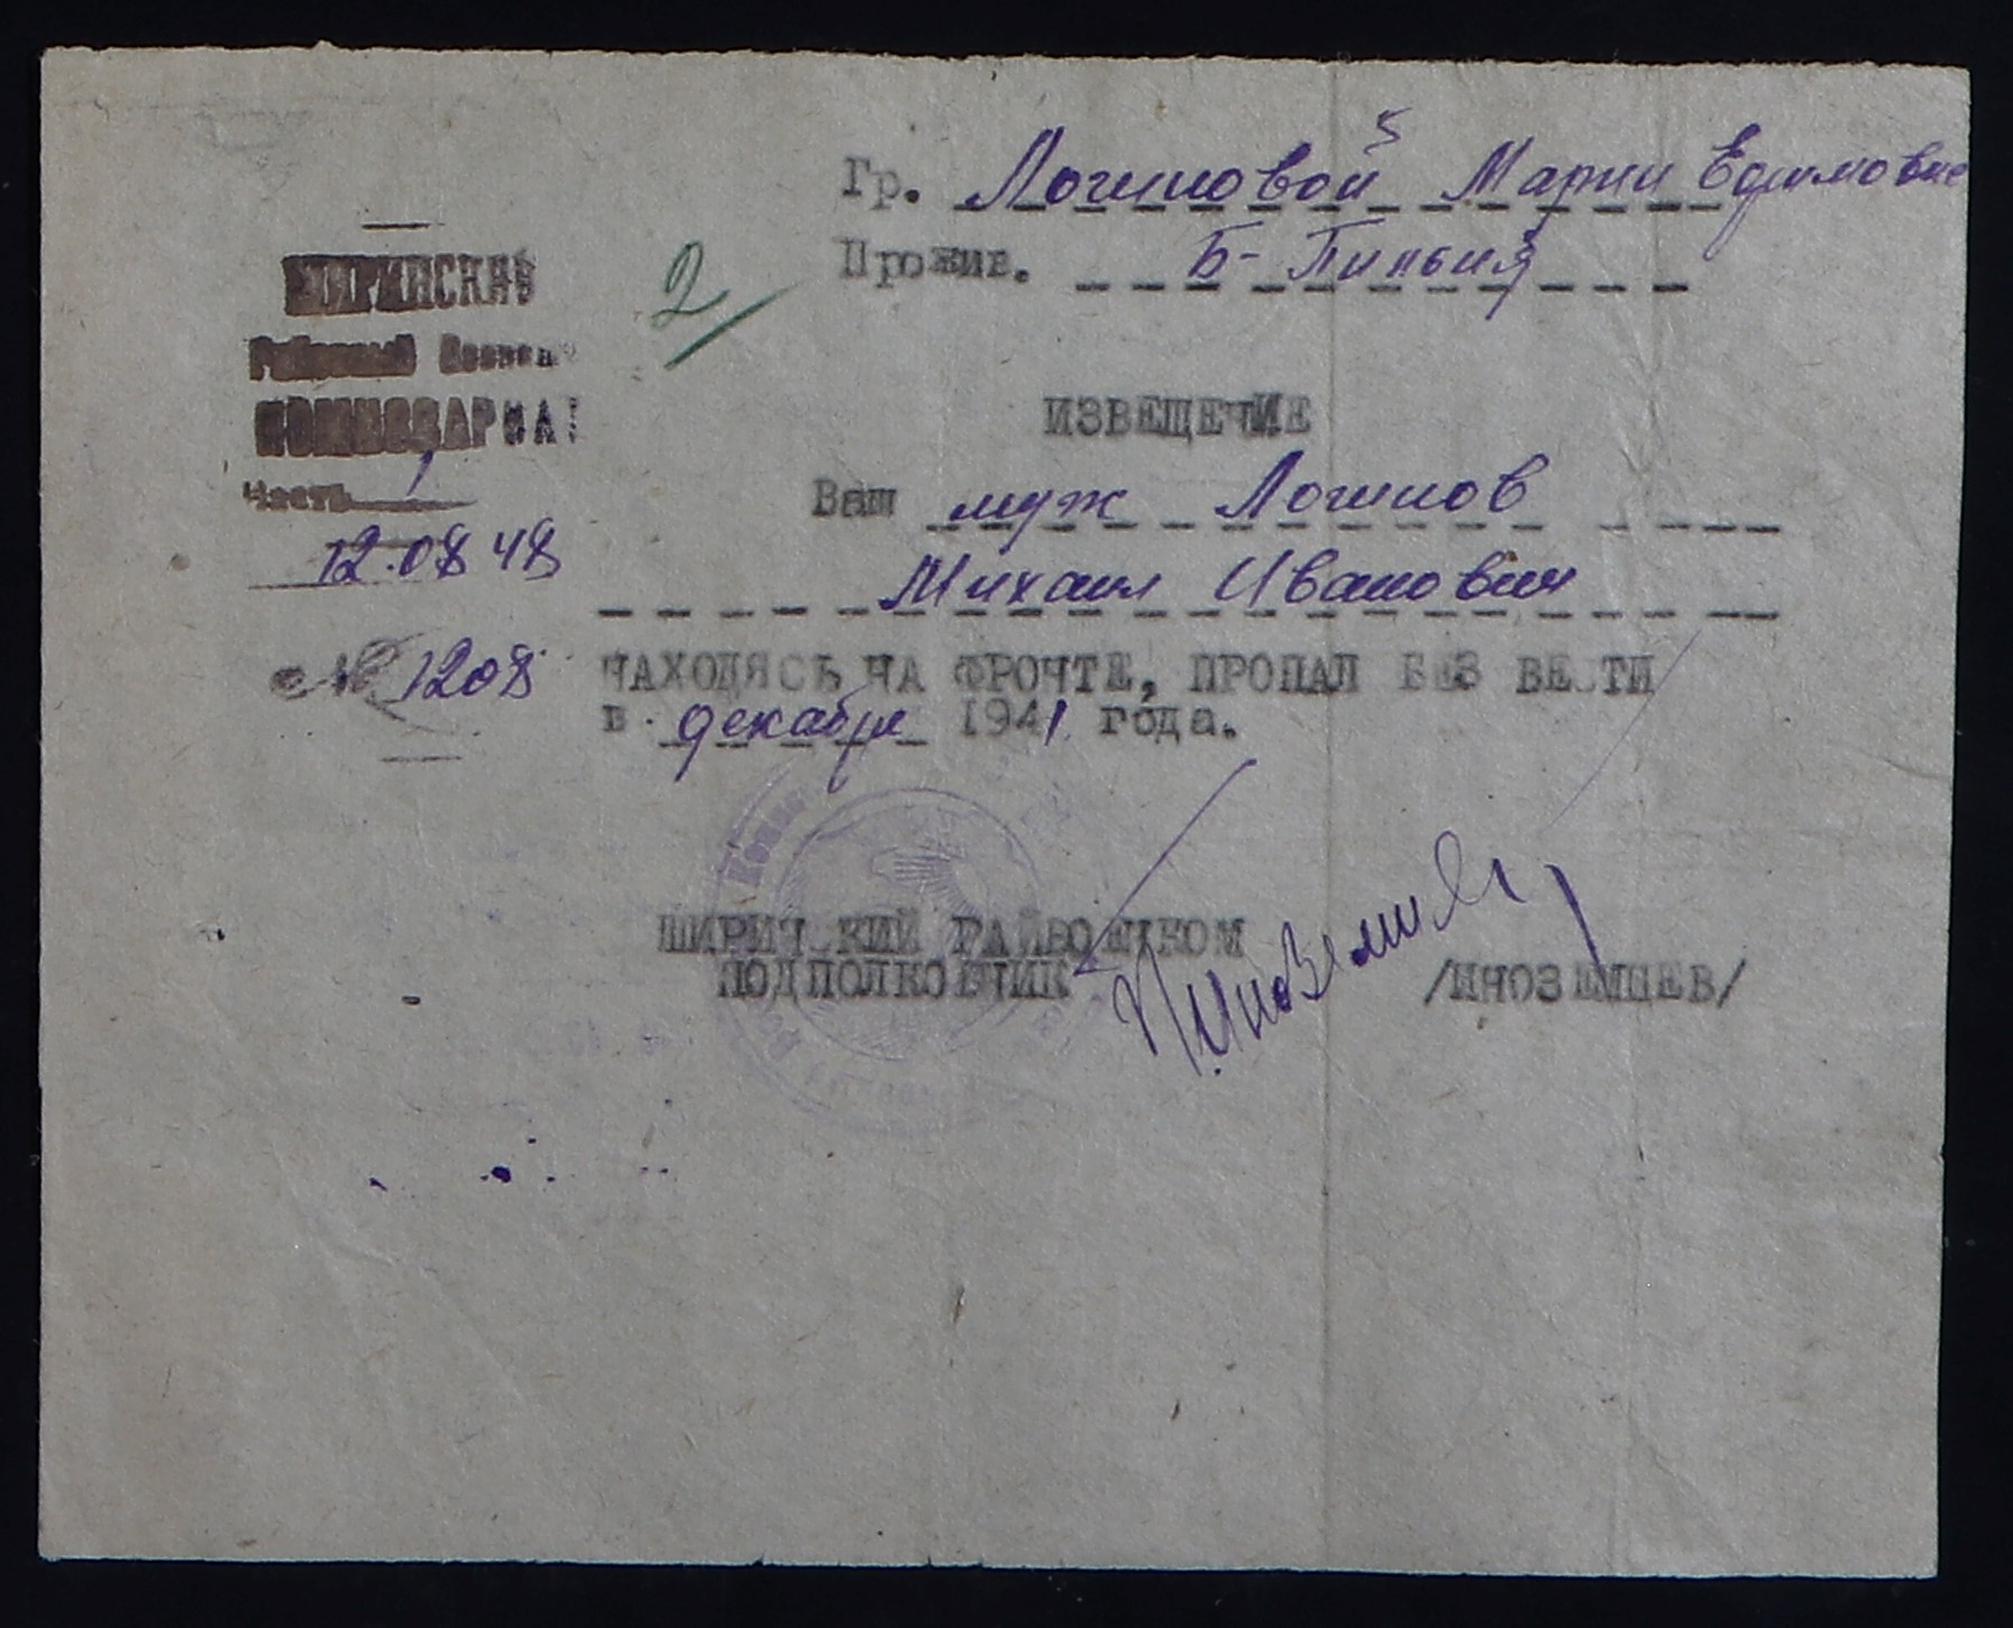 Гр. Логиновой Марии Ефимовне
Прожив. Б-
2
ШИРИНСКИЙ
Районный Военный
КОМИССАРИАТ
Часть 1
12.08 48
№ 1208
ИЗВЕЩЕНИЕ
Ваш муж Логинов
Михаил Иванович
НАХОДЯСЬ НА ФРОНТЕ, ПРОПАЛ БЕЗ ВЕСТИ
в декабре 1941 года.
ШИРИНСКИЙ РАЙВОЕНКОМ
ПОДПОЛКОВНИК /ИНОЗЕМЦЕВ/